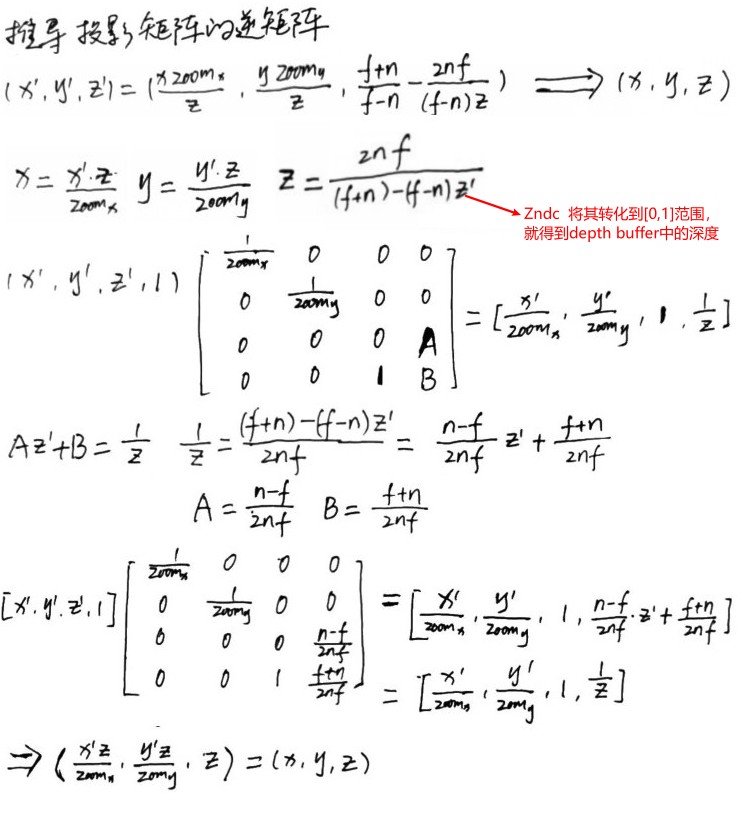 推导 投影矩阵的逆矩阵
(x', y', z') = (x zoomx / z, y zoomy / z, f+n / f-n - 2nf / (f-n)z) ⟹ (x, y, z)
x = x'·z / zoomx y = y'·z / zoomy z = 2nf / (f+n)-(f-n)z'
Zndc 将其转化到[0,1]范围,
就得到depth buffer中的深度
(x', y', z', 1) [ 1/zoomx 0 0 0
0 1/zoomy 0 0
0 0 0 A
0 0 1 B ] = [x'/zoomx, y'/zoomy, 1, 1/z]
Az'+B = 1/z 1/z = (f+n)-(f-n)z' / 2nf = n-f/2nf z' + f+n/2nf
A = n-f/2nf B = f+n/2nf
[x', y', z', 1] [ 1/zoomx 0 0 0
0 1/zoomy 0 0
0 0 0 n-f/2nf
0 0 1 f+n/2nf ] = [x'/zoomx, y'/zoomy, 1, n-f/2nf·z' + f+n/2nf]
= [x'/zoomx, y'/zomy, 1, 1/z]
⇒ (x'z/zoomx, y'z/zomy, z) = (x, y, z)